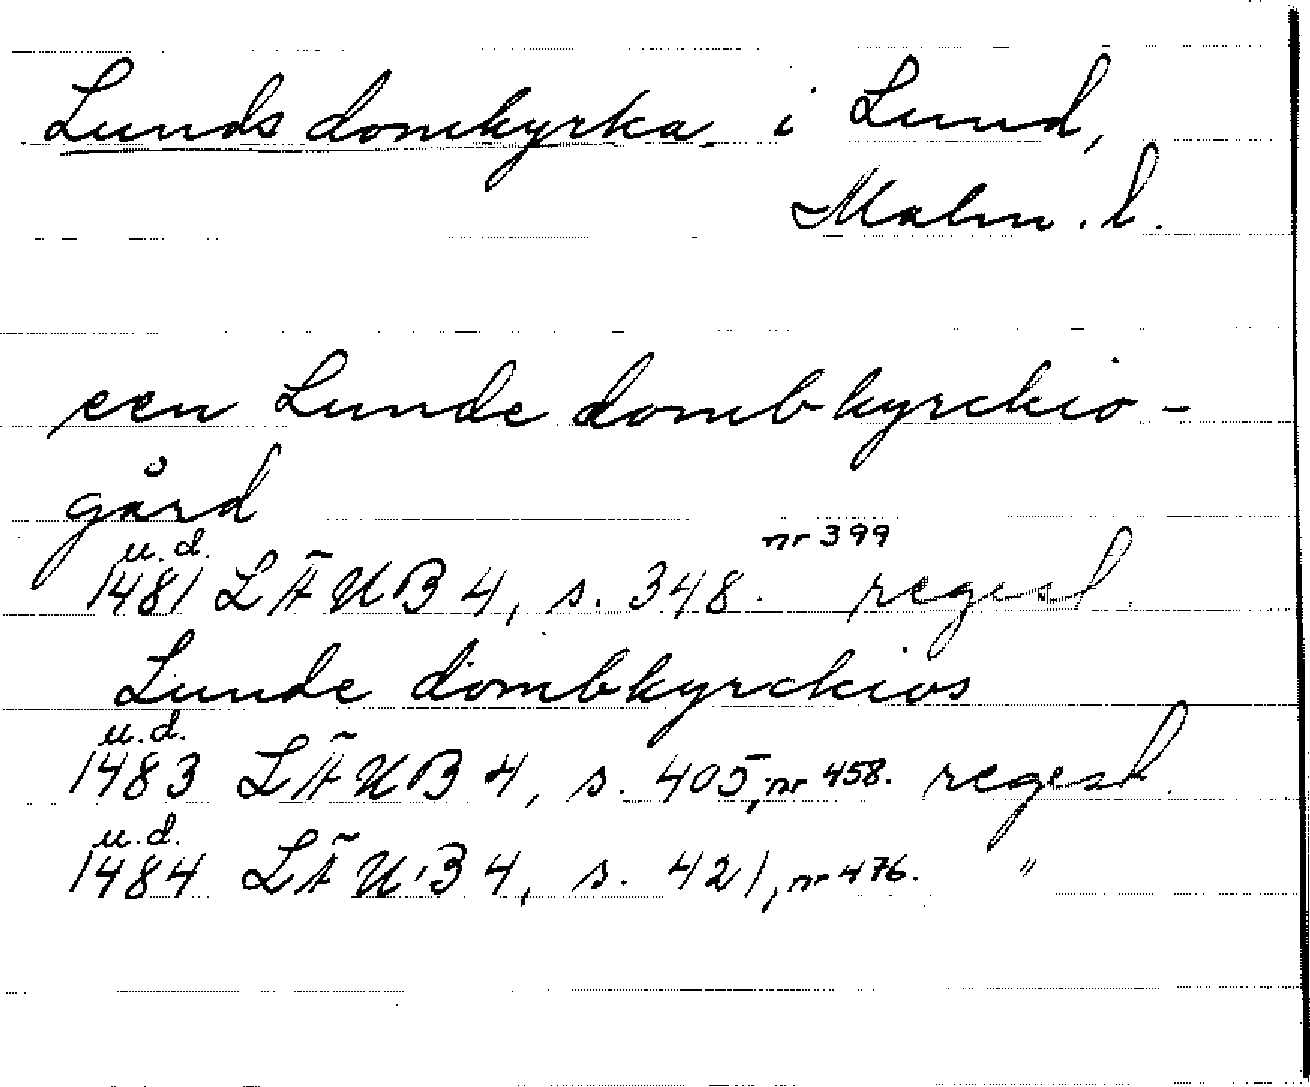 Lunds domkyrka i Lund,
Malm. l.
een Lunde dombkyrckio-
gård
u.d.
nr 399
1481 LÄUB 4, s. 348. regest.
Lunde dombkyrckios
u.d.
1483 LÄUB 4, s. 405, nr 458. regest.
u.d.
1484 LÄUB 4, s. 421, nr 476. "